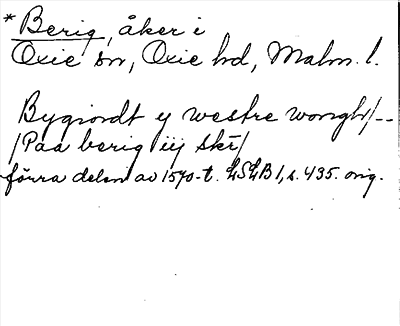 * Berig, åker i
Oxie sn, Oxie hd, Malm. l.
Bygiordt ij westre wongh/--
/Paa berig iij skr/
förra delen av 1570-t. LSLB 1, s. 435. orig.